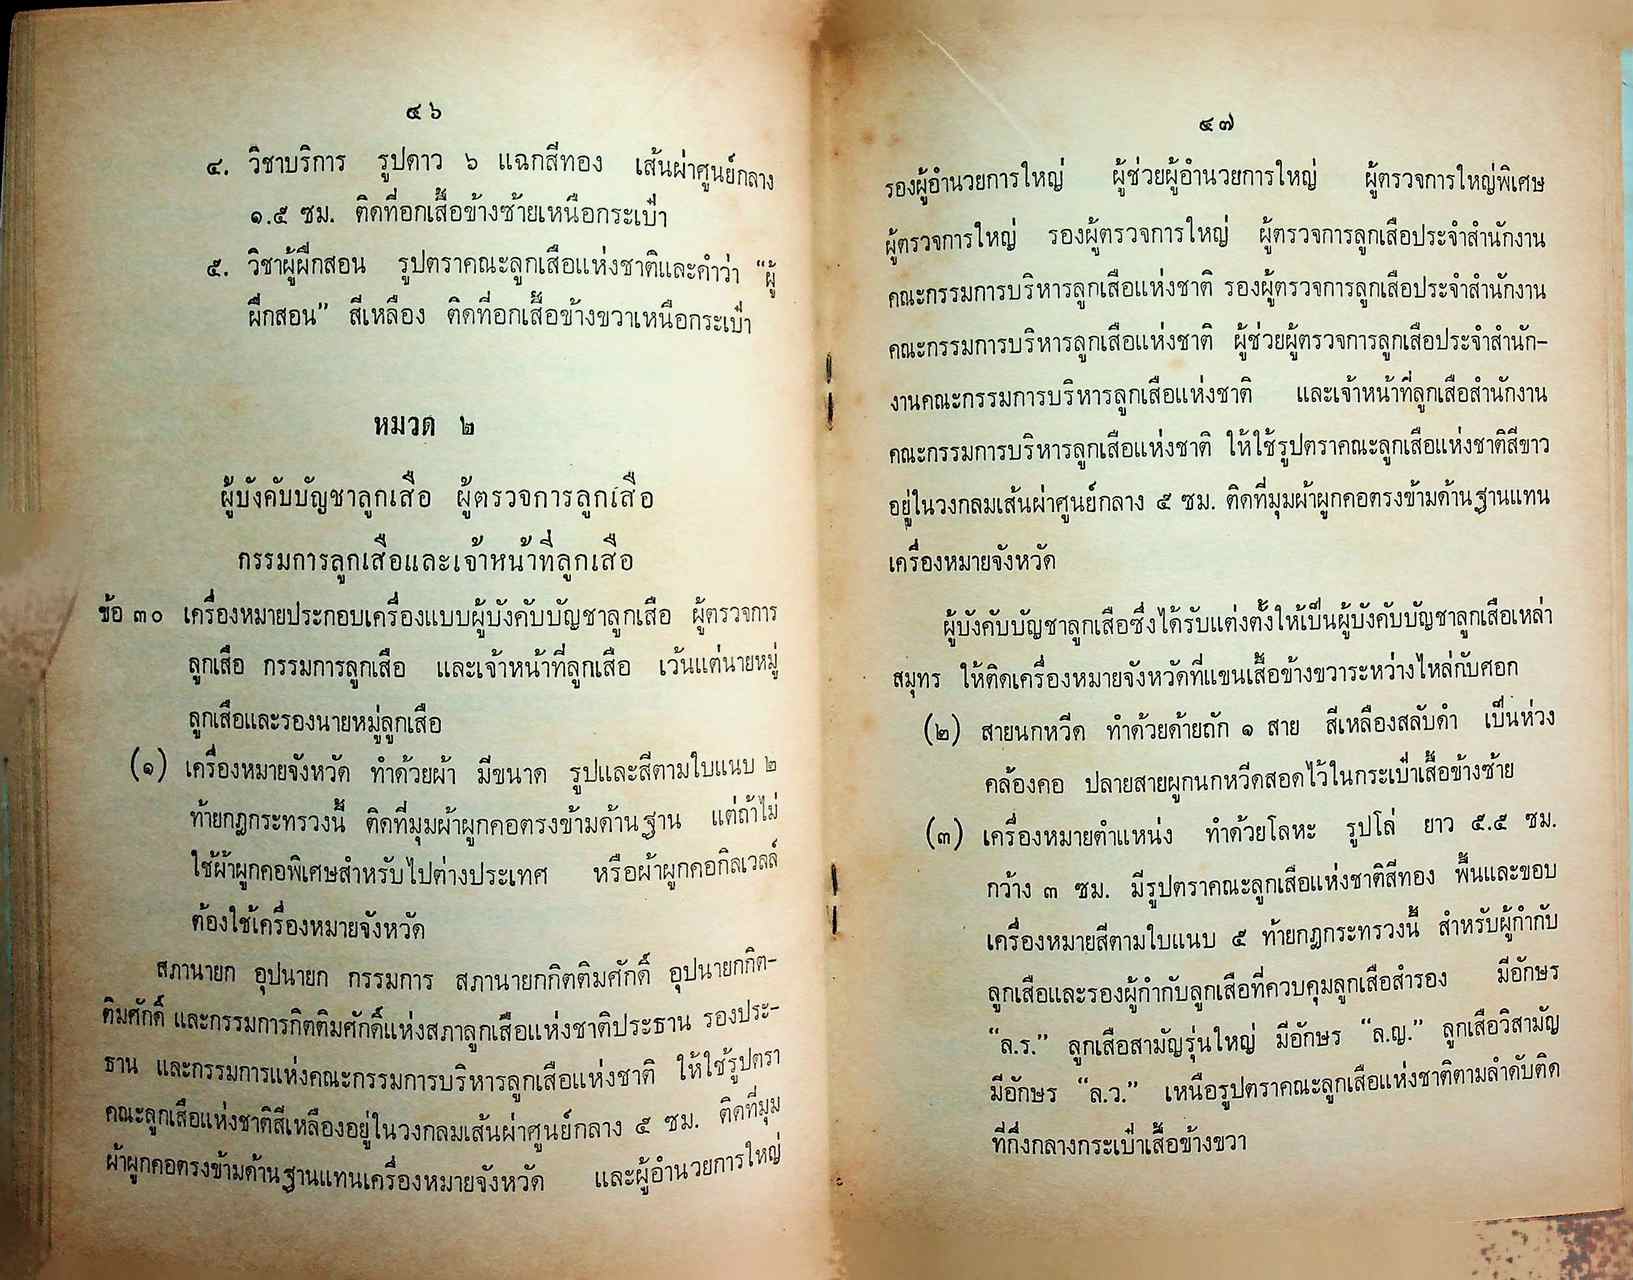 ๔๖
๔. วิชาบริการ รูปดาว ๖ แฉกสีทอง เส้นผ่าศูนย์กลาง
๑.๕ ซม. ติดที่อกเสื้อข้างซ้ายเหนือกระเป๋า
๕. วิชาผู้ฝึกสอน รูปตราคณะลูกเสือแห่งชาติและคำว่า “ผู้
ฝึกสอน” สีเหลือง ติดที่อกเสื้อข้างขวาเหนือกระเป๋า
หมวด ๒
ผู้บังคับบัญชาลูกเสือ ผู้ตรวจการลูกเสือ
กรรมการลูกเสือและเจ้าหน้าที่ลูกเสือ
ข้อ ๓๐ เครื่องหมายประกอบเครื่องแบบผู้บังคับบัญชาลูกเสือ ผู้ตรวจการ
ลูกเสือ กรรมการลูกเสือ และเจ้าหน้าที่ลูกเสือ เว้นแต่นายหมู่
ลูกเสือและรองนายหมู่ลูกเสือ
(๑) เครื่องหมายจังหวัด ทำด้วยผ้า มีขนาด รูปและสีตามใบแนบ ๒
ท้ายกฎกระทรวงนี้ ติดที่มุมผ้าผูกคอตรงข้ามด้านฐาน แต่ถ้าไม่
ใช้ผ้าผูกคอพิเศษสำหรับไปต่างประเทศ หรือผ้าผูกคอกิลเวลล์
ต้องใช้เครื่องหมายจังหวัด
สภานายก อุปนายก กรรมการ สภานายกกิตติมศักดิ์ อุปนายกกิต-
ติมศักดิ์ และกรรมการกิตติมศักดิ์แห่งสภาลูกเสือแห่งชาติประธาน รองประ-
ธาน และกรรมการแห่งคณะกรรมการบริหารลูกเสือแห่งชาติ ให้ใช้รูปตรา
คณะลูกเสือแห่งชาติสีเหลืองอยู่ในวงกลมเส้นผ่าศูนย์กลาง ๕ ซม. ติดที่มุม
ผ้าผูกคอตรงข้ามด้านฐานแทนเครื่องหมายจังหวัด และผู้อำนวยการใหญ่
๔๗
รองผู้อำนวยการใหญ่ ผู้ช่วยผู้อำนวยการใหญ่ ผู้ตรวจการใหญ่พิเศษ
ผู้ตรวจการใหญ่ รองผู้ตรวจการใหญ่ ผู้ตรวจการลูกเสือประจำสำนักงาน
คณะกรรมการบริหารลูกเสือแห่งชาติ รองผู้ตรวจการลูกเสือประจำสำนักงาน
คณะกรรมการบริหารลูกเสือแห่งชาติ ผู้ช่วยผู้ตรวจการลูกเสือประจำสำนัก-
งานคณะกรรมการบริหารลูกเสือแห่งชาติ และเจ้าหน้าที่ลูกเสือสำนักงาน
คณะกรรมการบริหารลูกเสือแห่งชาติ ให้ใช้รูปตราคณะลูกเสือแห่งชาติสีขาว
อยู่ในวงกลมเส้นผ่าศูนย์กลาง ๕ ซม. ติดที่มุมผ้าผูกคอตรงข้ามด้านฐานแทน
เครื่องหมายจังหวัด
ผู้บังคับบัญชาลูกเสือซึ่งได้รับแต่งตั้งให้เป็นผู้บังคับบัญชาลูกเสือเหล่า
สมุทร ให้ติดเครื่องหมายจังหวัดที่แขนเสื้อข้างขวาระหว่างไหล่กับศอก
(๒) สายนกหวีด ทำด้วยด้ายถัก ๑ สาย สีเหลืองสลับดำ เป็นห่วง
คล้องคอ ปลายสายผูกนกหวีดสอดไว้ในกระเป๋าเสื้อข้างซ้าย
(๓) เครื่องหมายตำแหน่ง ทำด้วยโลหะ รูปโล่ ยาว ๕.๕ ซม.
กว้าง ๓ ซม. มีรูปตราคณะลูกเสือแห่งชาติสีทอง พื้นและขอบ
เครื่องหมายสีตามใบแนบ ๕ ท้ายกฎกระทรวงนี้ สำหรับผู้กำกับ
ลูกเสือและรองผู้กำกับลูกเสือที่ควบคุมลูกเสือสำรอง มีอักษร
“ล.ร.” ลูกเสือสามัญรุ่นใหญ่ มีอักษร “ล.ญ.” ลูกเสือวิสามัญ
มีอักษร “ล.ว.” เหนือรูปตราคณะลูกเสือแห่งชาติตามลำดับติด
ที่กึ่งกลางกระเป๋าเสื้อข้างขวา